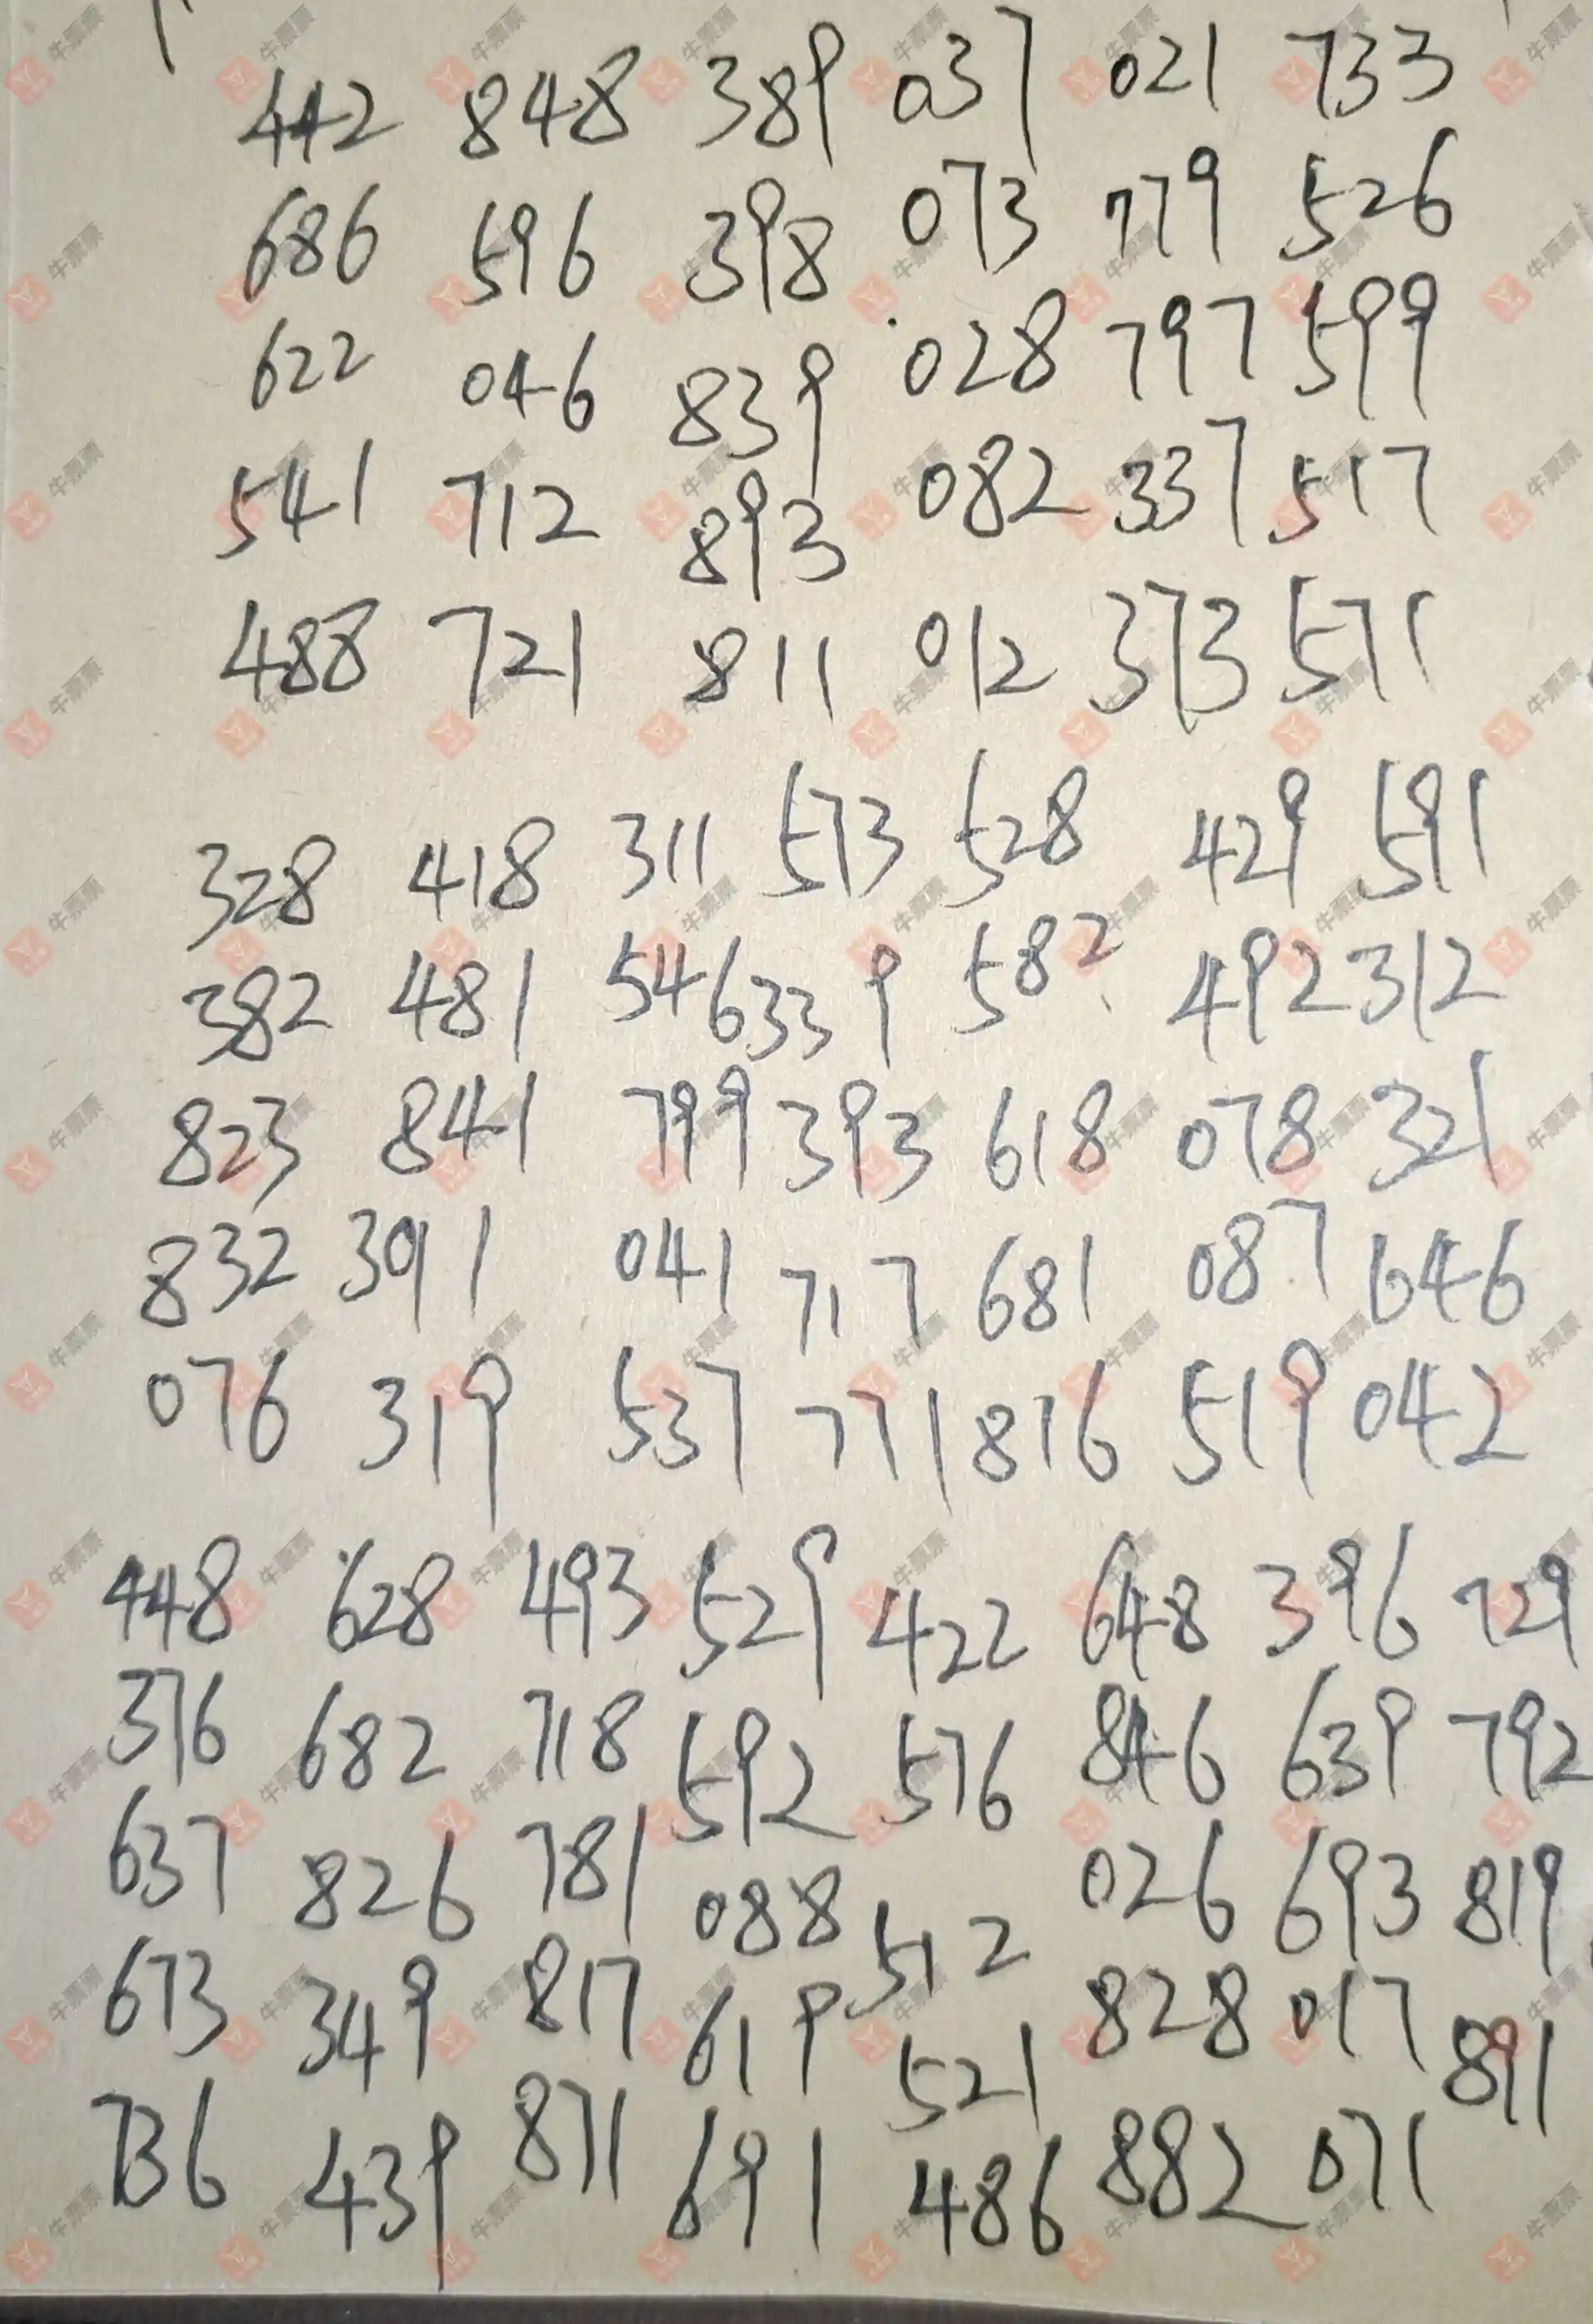 442 848 389 037 021 733
686 596 398 073 779 526
622 046 839 028 797 599
541 712 893 082 337 517
488 721 811 012 373 571
328 418 311 573 528 429 591
382 481 546 339 582 492 312
823 841 799 393 618 078 321
832 391 041 717 681 087 646
076 319 537 771 816 519 042
448 628 493 529 422 648 396 729
376 682 718 592 576 846 639 792
637 826 781 088 512 026 693 819
673 349 817 619 521 828 017 891
736 439 871 691 486 882 071